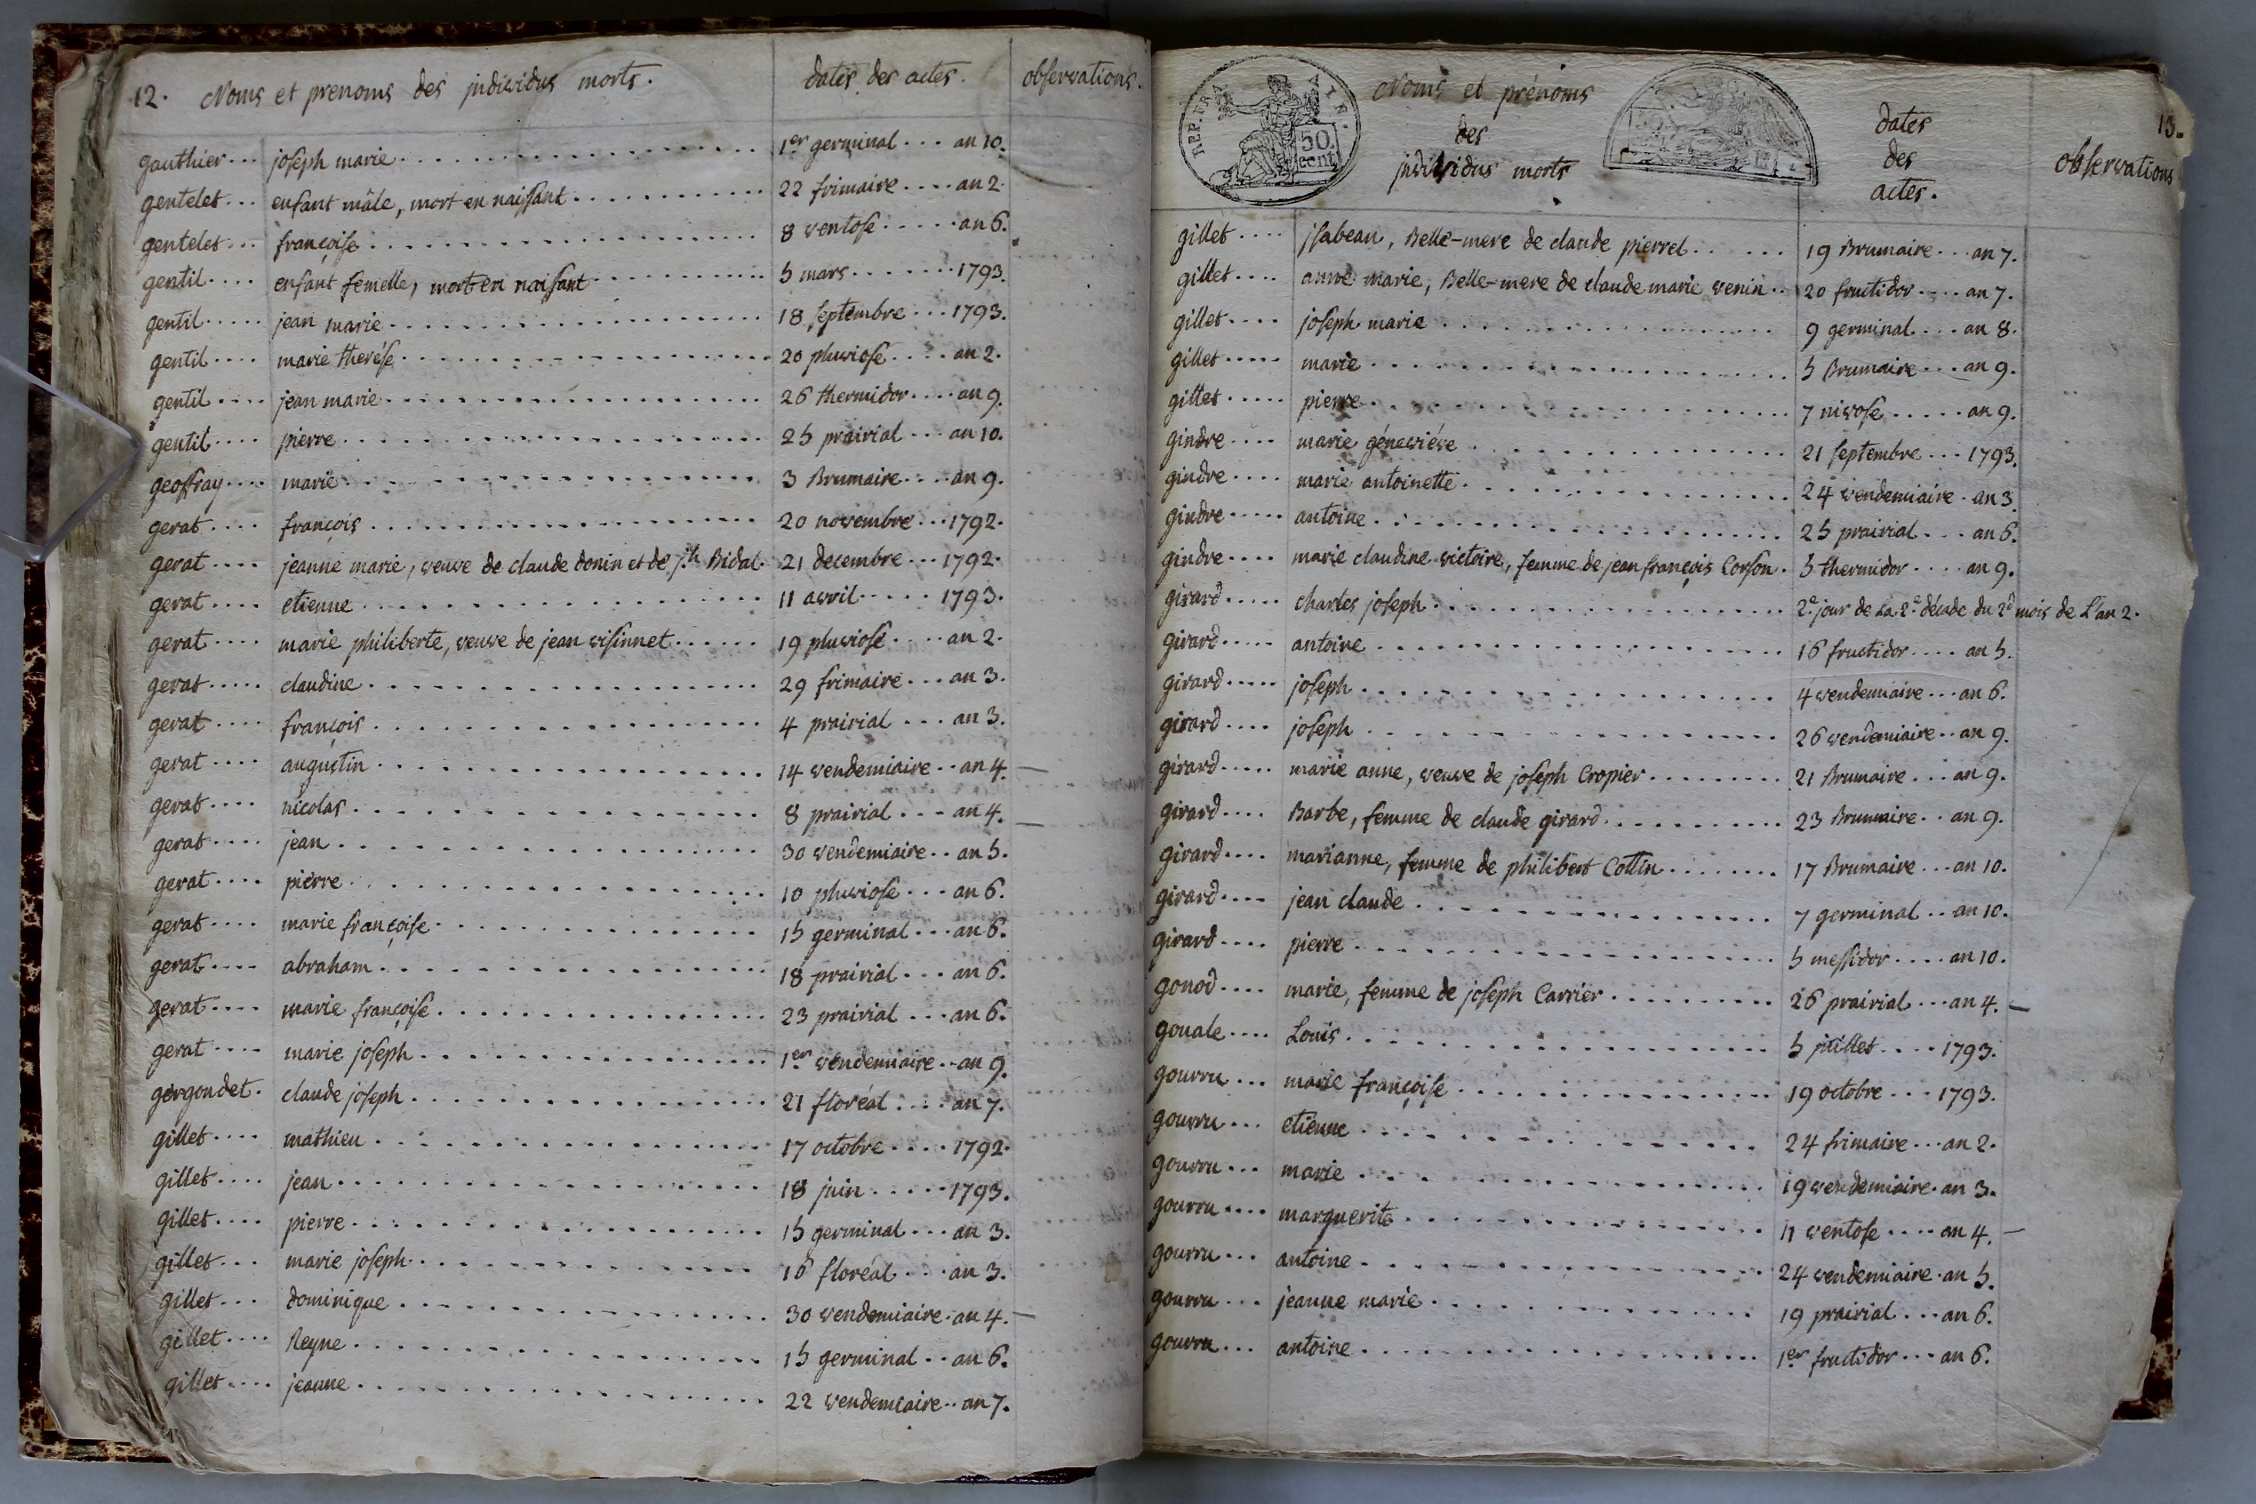 12. Noms et prenoms des jndividus morts. dates des actes. observations.
gauthier... joseph marie... 1er germinal... an 10.
gentelet... enfant mâle, mort en naissant... 22 frimaire.... an 2.
gentelet... françoise... 8 ventose..... an 6.
gentil.... enfant femelle, mort en naissant... 5 mars....... 1793.
gentil..... jean marie... 18 septembre... 1793.
gentil.... marie therése... 20 pluviose.... an 2.
gentil.... jean marie... 26 thermidor.... an 9.
gentil.... pierre... 25 prairial... an 10.
geoffray.... marie... 3 Brumaire.... an 9.
gerat.... françois... 20 novembre... 1792.
gerat.... jeanne marie, veuve de claude donin et de jh Bidal. 21 decembre... 1792.
gerat.... etienne... 11 avril..... 1793.
gerat.... marie philiberte, veuve de jean visinnet...... 19 pluviose.... an 2.
gerat..... claudine... 29 frimaire... an 3.
gerat.... françois... 4 prairial... an 3.
gerat.... augustin... 14 vendemiaire.. an 4.
gerat.... nicolas... 8 prairial... an 4.
gerat.... jean... 30 vendemiaire.. an 5.
gerat.... pierre... 10 pluviose... an 6.
gerat.... marie françoise... 15 germinal... an 6.
gerat.... abraham... 18 prairial... an 6.
gerat.... marie françoise... 23 prairial... an 6.
gerat.... marie joseph... 1er vendemiaire.. an 9.
gergondet. claude joseph... 21 floréal.... an 7.
gillet.... mathieu... 17 octobre.... 1792.
gillet.... jean... 18 juin..... 1793.
gillet.... pierre... 15 germinal... an 3.
gillet... marie joseph... 16 floréal... an 3.
gillet... dominique... 30 vendemiaire. an 4.
gillet.... Reyne... 15 germinal.. an 6.
gillet.... jeanne... 22 vendemiaire.. an 7.
REP. FRA
50.
cent
Noms et prénoms
des
jndividus morts
dates
des
actes.
13.
observations
gillet.... jsabeau, Belle-mere de claude pierrel...... 19 Brumaire... an 7.
gillet.... anne marie, Belle-mere de claude marie venin.. 20 fructidor.... an 7.
gillet.... joseph marie... 9 germinal.... an 8.
gillet..... marie... 5 Brumaire... an 9.
gillet..... pierre... 7 nivose..... an 9.
gindre.... marie généviéve... 21 septembre... 1793.
gindre.... marie antoinette... 24 vendemiaire. an 3.
gindre..... antoine... 25 prairial... an 6.
gindre.... marie claudine victoire, femme de jean françois Corson. 5 thermidor.... an 9.
girard..... charles joseph... 2e jour de La 2e décade du 2d mois de L'an 2.
girard..... antoine... 16 fructidor.... an 5.
girard..... joseph... 4 vendemiaire... an 6.
girard.... joseph... 26 vendemiaire.. an 9.
girard..... marie anne, veuve de joseph Cropier......... 21 Brumaire... an 9.
girard.... Barbe, femme de claude girard.......... 23 Brumaire.. an 9.
girard.... marianne, femme de philibert Cottin........ 17 Brumaire... an 10.
girard.... jean claude... 7 germinal.. an 10.
girard.... pierre... 5 messidor.... an 10.
gonod.... marie, femme de joseph Carrier.......... 26 prairial... an 4.
gouale.... Louis... 5 juillet.... 1793.
gourru... marie françoise... 19 octobre... 1793.
gourru... etienne... 24 frimaire... an 2.
gourru... marie... 19 vendemiaire. an 3.
gourru.... marguerite... 11 ventose.... an 4.
gourru... antoine... 24 vendemiaire. an 5.
gourru... jeanne marie... 19 prairial... an 6.
gourru... antoine... 1er fructidor... an 6.